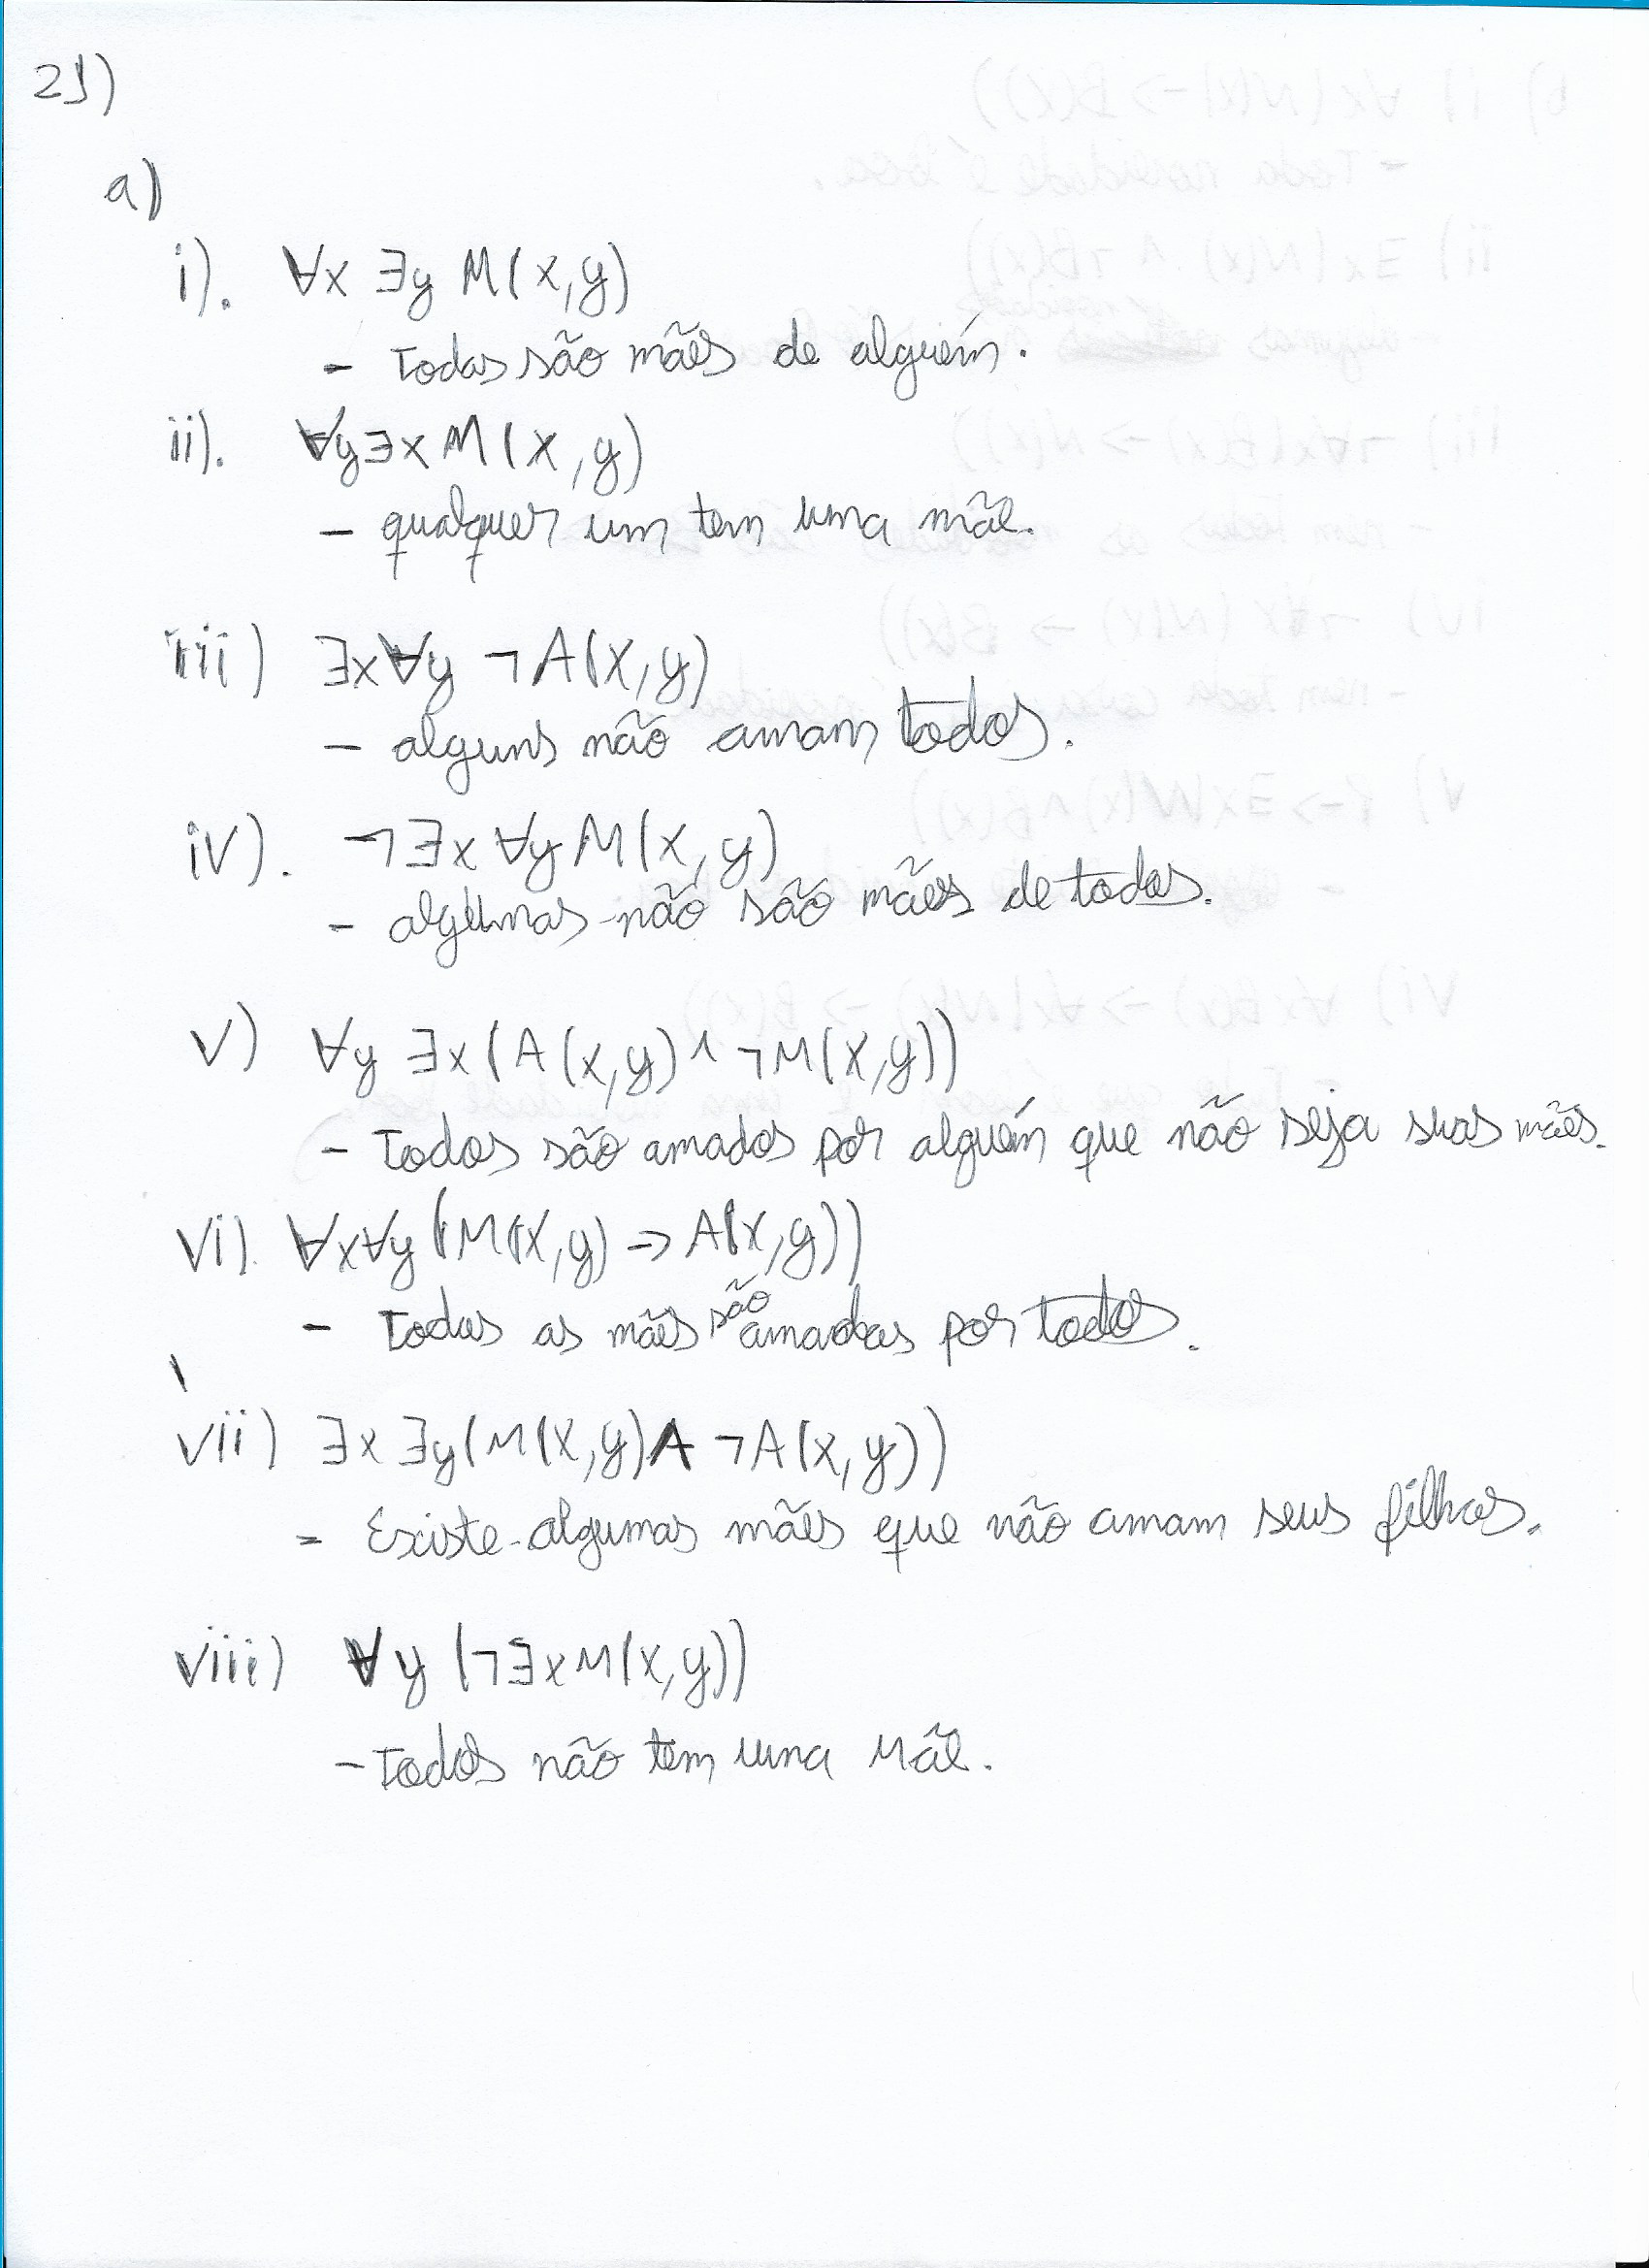 21)
a)
i). ∀x ∃y M(x,y)
- Todas são mães de alguém.
ii). ∀y∃x M(x,y)
- qualquer um tem uma mãe.
iii) ∃x∀y ¬A(x,y)
- alguns não amam todos.
iv). ¬∃x ∀y M(x,y)
- algumas não são mães de todos.
v) ∀y ∃x(A(x,y)∧¬M(x,y))
- Todos são amados por alguém que não seja suas mães.
vi). ∀x∀y(M(x,y)→A(x,y))
- Todas as mães são amadas por todos.
vii) ∃x ∃y(M(x,y)∧¬A(x,y))
- Existe algumas mães que não amam seus filhos.
viii) ∀y (¬∃x M(x,y))
- Todos não tem uma Mãe.